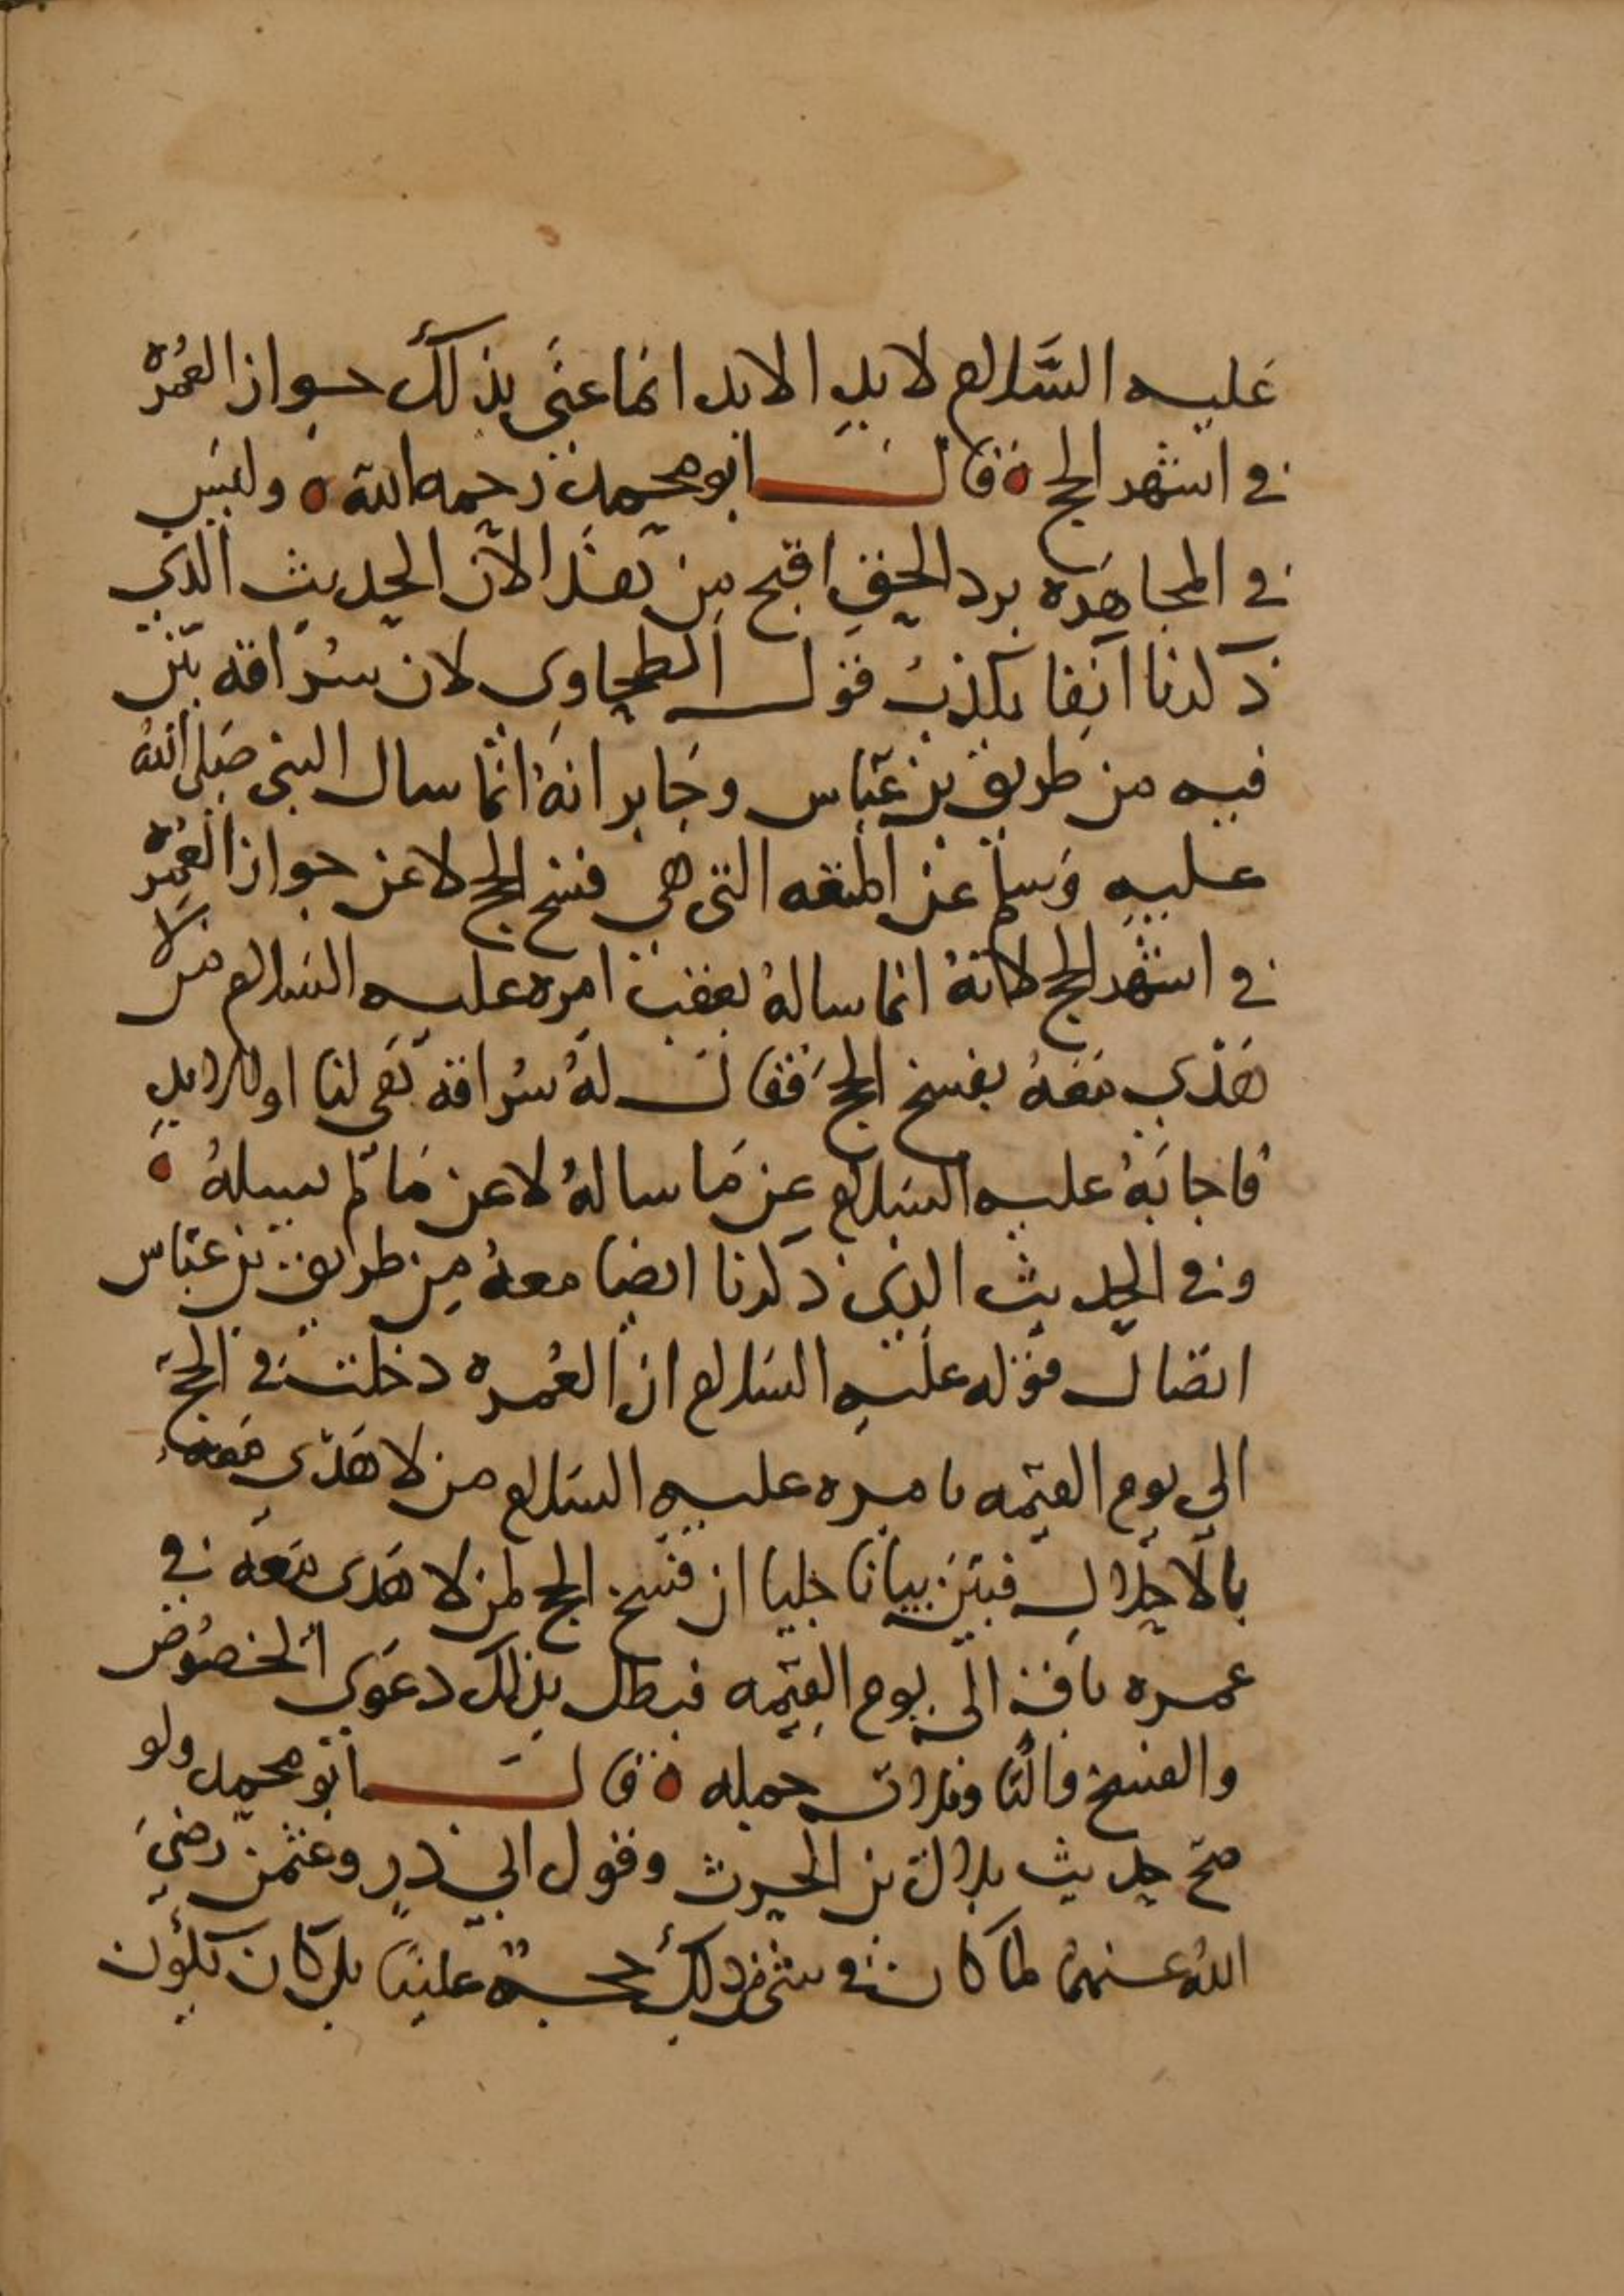 عليه السَّلام لابدِ الابد انما عنَى بذلك جواز العُمره
في اشهر الحج ه قال ابو محمد رحمه الله ه وليس
في المجاهَره برد الحق اقبح من هذا لان الحديث الذي
ذكرنا آنفا يكذبُ قول الطحاوى لان سُراقه بيّن
فيه من طريق بن عبّاس وجَابر انهُ انّما سال النبي صَلى اللهُ
عليه وَسلم عن المتعه التي هي فسخ الحج لا عن جواز العُمره
في اشهر الحج لانهُ انما سالهُ بعقب امره عليه السلام من لا
هَدْي مَعَهُ بفسخ الحج فقال لهُ سُراقه هى لنا او للابدِ
فاجابَهُ عليه السلام عن مَا سالهُ لا عن مَا لم يسلهُ ه
وفي الحديث الذي ذكرنا ايضا معهُ من طريق بن عبّاس
اتصال قوله عليه السلام ان العُمره دخلت في الحج
الى يوم القيمه بامره عليه السَلام من لا هَدْى مَعَهُ
بالاحلال فبيّن بيانا جليا ان فسخ الحج لمن لا هَدى مَعَهُ في
عمره باقٍ الى يوم القيمه فبطل بذلك دعوَى الخصُوص
والفسخ وا وبلات جمله ه قال ابو محمد ولو
صحّ حديث بلال بن الحرث وقول ابي ذر وعثمن رضيَ
اللهُ عنهما لما كان في شي من ذلك حجة علينا بل كان يكون